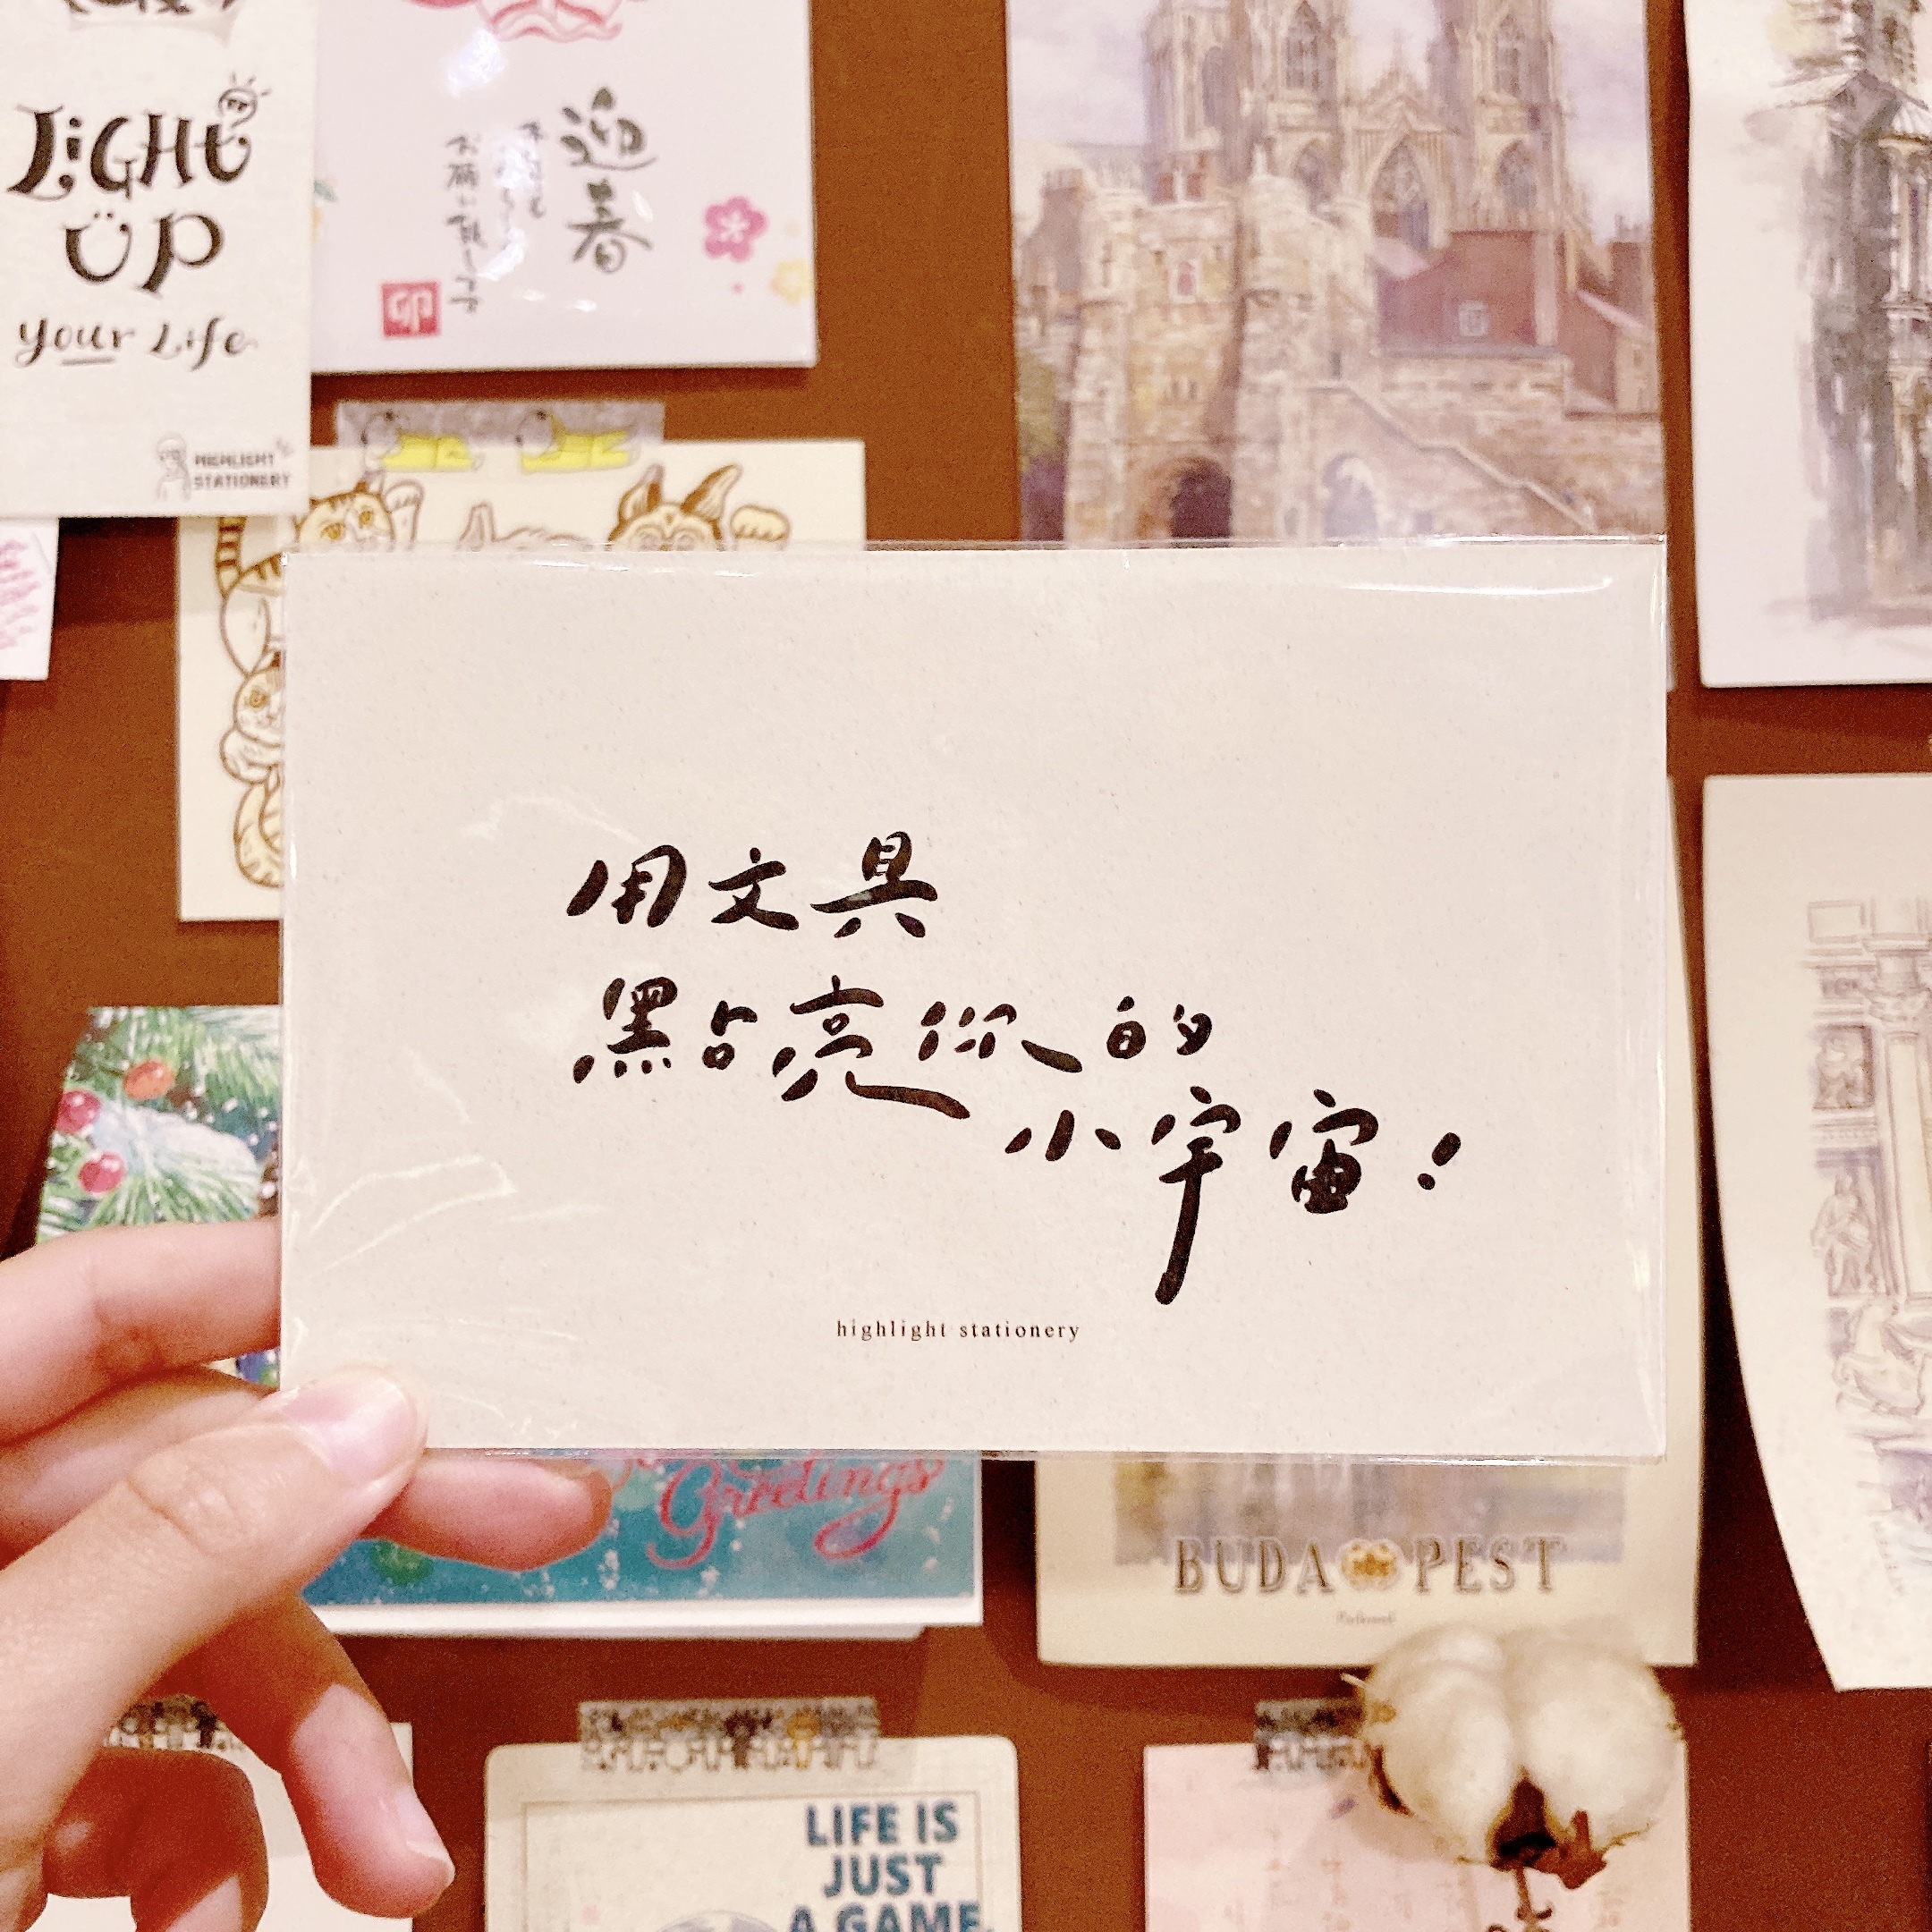 LIGHT
UP
your Life
HIGHLIGHT
STATIONERY
迎春
卯
用文具
點亮你的
小宇宙!
highlight stationery
Greetings
BUDA PEST
LIFE IS
JUST
A GAME